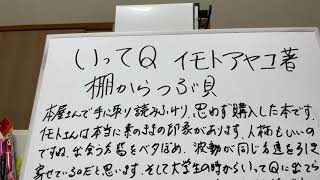 いってQ イモトアヤコ著
棚からつぶ貝
本屋さんで手に取り読みふけり、思わず購入した本です。
イモトさんは本当に素のままの印象があります。人柄もいいの
ですね。出会う方皆をベタぼめ、波動が同じ者達を引き
寄せているのだと思います。そして大学生の時からいってQに出てら